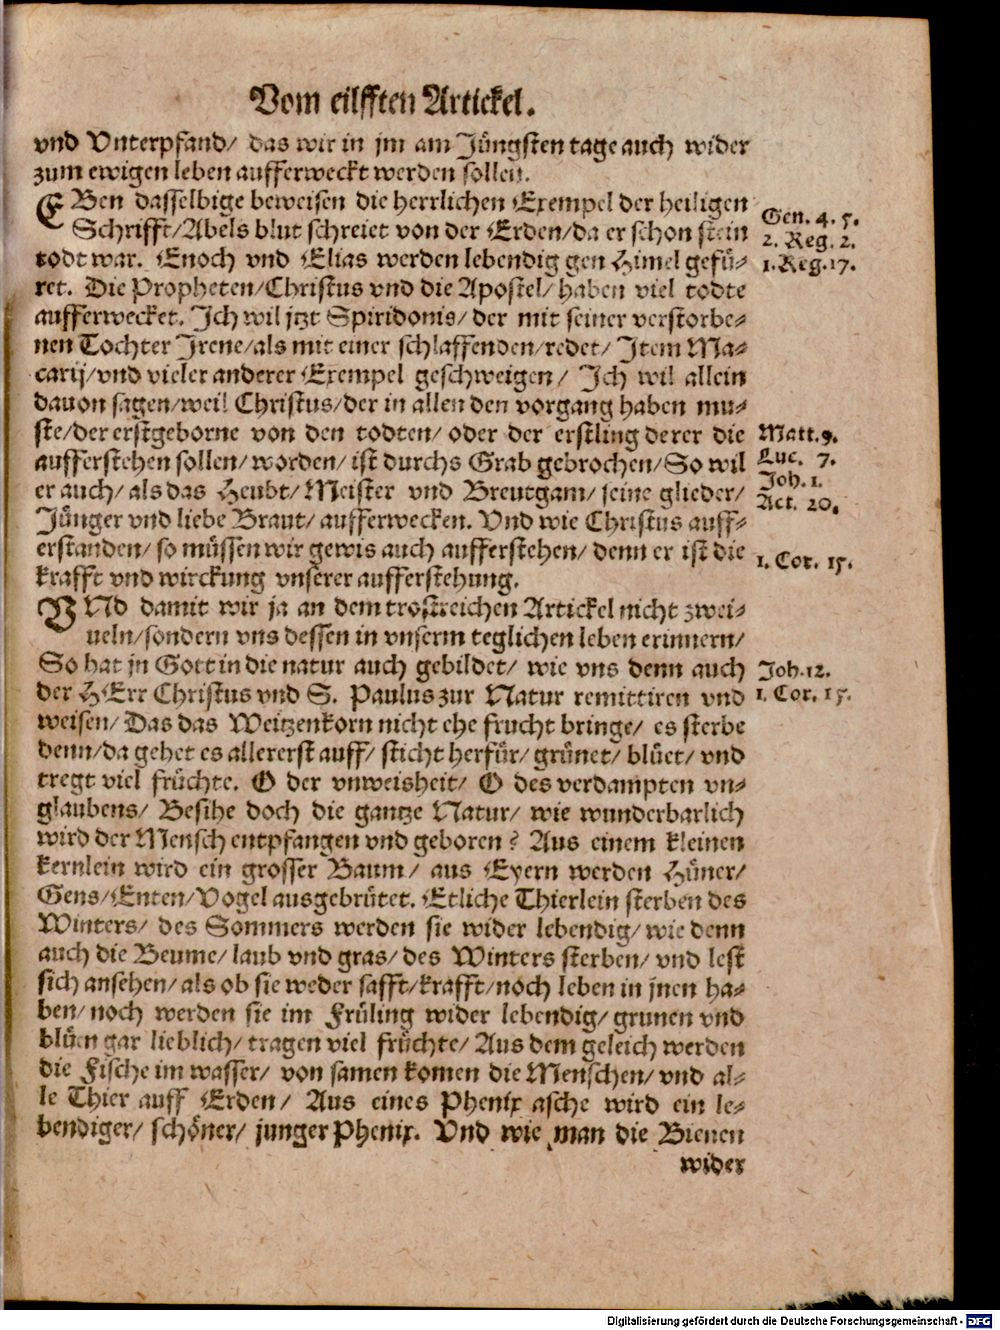 Vom eilfften Artickel.
vnd Vnterpfand/ das wir in jm am Jüngsten tage auch wider
zum ewigen leben aufferweckt werden sollen.
EBen dasselbige beweisen die herrlichen Exempel der heiligen
Schrifft/Abels blut schreiet von der Erden/da er schon stein
todt war. Enoch vnd Elias werden lebendig gen Himel gefü-
ret. Die Propheten/Christus vnd die Apostel/ haben viel todte
aufferwecket. Ich wil jtzt Spiridonis/ der mit seiner verstorbe-
nen Tochter Irene/als mit einer schlaffenden/redet/ Item Ma-
carij/vnd vieler anderer Exempel geschweigen/ Ich wil allein
dauon sagen/weil Christus/der in allen den vorgang haben mu-
ste/der erstgeborne von den todten/ oder der erstling derer die
aufferstehen sollen/ worden/ ist durchs Grab gebrochen/So wil
er auch/ als das Heubt/Meister vnd Breutgam/ seine glieder/
Jünger vnd liebe Braut/ aufferwecken. Vnd wie Christus auff-
erstanden/ so müssen wir gewis auch aufferstehen/ denn er ist die
krafft vnd wirckung vnserer aufferstehung.
VNd damit wir ja an dem trostreichen Artickel nicht zwei-
ueln/sondern vns dessen in vnserm teglichen leben erinnern/
So hat jn Gott in die natur auch gebildet/ wie vns denn auch
der HErr Christus vnd S. Paulus zur Natur remittiren vnd
weisen/ Das das Weitzenkorn nicht ehe frucht bringe/ es sterbe
denn/da gehet es allererst auff/ sticht herfür/ grünet/ blüet/ vnd
tregt viel früchte. O der vnweisheit/ O des verdampten vn-
glaubens/ Besihe doch die gantze Natur/ wie wunderbarlich
wird der Mensch entpfangen vnd geboren? Aus einem kleinen
kernlein wird ein grosser Baum/ aus Eyern werden Hüner/
Gens/Enten/Vogel ausgebrütet. Etliche Thierlein sterben des
Winters/ des Sommers werden sie wider lebendig/ wie denn
auch die Beume/ laub vnd gras/ des Winters sterben/ vnd lest
sich ansehen/ als ob sie weder safft/krafft/noch leben in jnen ha-
ben/ noch werden sie im Früling wider lebendig/ grunen vnd
blüen gar lieblich/ tragen viel früchte/ Aus dem geleich werden
die Fische im wasser/ von samen komen die Menschen/ vnd al-
le Thier auff Erden/ Aus eines Phenix asche wird ein le-
bendiger/ schöner/ junger Phenix. Vnd wie man die Bienen
wider
Gen. 4. 5.
2. Reg. 2.
1. Reg. 17.
Matt. 9.
Luc. 7.
Joh. 1.
Act. 20.
1. Cor. 15.
Joh. 12.
1. Cor. 15.
Digitalisierung gefördert durch die Deutsche Forschungsgemeinschaft - DFG